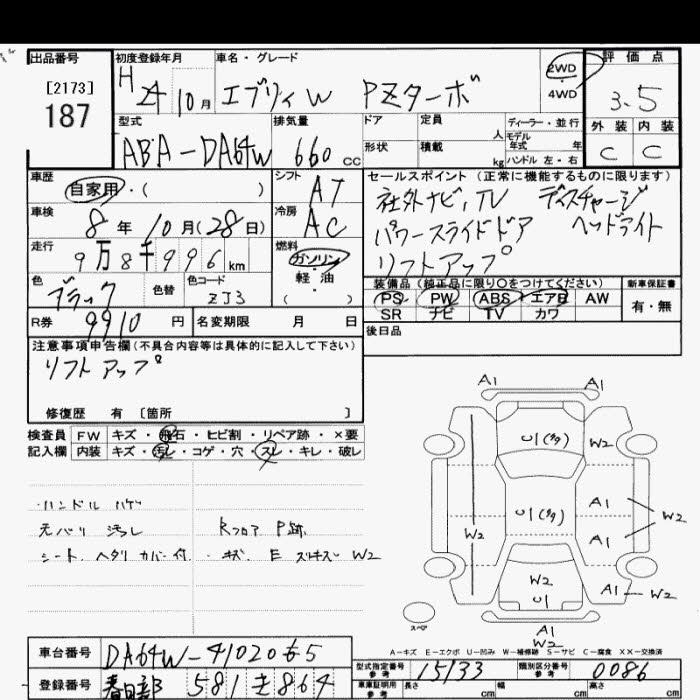 出品番号
[2173]
187
初度登録年月
H 24 10月
車名・グレード
エブリィW PZターボ
2WD
4WD
評価点
3.5
外装 内装
C C
型式
ABA-DA64W
排気量
660 cc
ドア
定員
人
形状
積載
kg
ディーラー・並行
モデル
年式 年
ハンドル 左・右
車歴
自家用・( )
シフト
AT
車検
8年 10月(28日)
冷房
AC
走行
9万8千996km
燃料
ガソリン
軽油
( )
色
ブラック
色替
色コード
ZJ3
R券
9910円
名変期限 月 日
セールスポイント(正常に機能するものに限ります)
社外ナビ,TV ディスチャージ
パワースライドドア ヘッドライト
リフトアップ
装備品(純正品に限り○をつけてください)
PS PW ABS エアB AW
SR ナビ TV カワ
新車保証書
有・無
後日品
注意事項申告欄(不具合内容等は具体的に記入して下さい)
リフトアップ
修復歴 有〔箇所 〕
検査員
記入欄
FW キズ・飛石・ヒビ割・リペア跡・×要
内装 キズ・汚レ・コゲ・穴・スレ・キレ・破レ
・ハンドル ハゲ
天バリ 汚レ Rフロア P跡
シート ヘタリ カバー付. ・キズ E W2
A1 A1
W2
A1
W2 W2
A1
W2
A1 W2
A1
W2
スペア
A-キズ E-エクボ U-凹み W-補修跡 S-サビ C-腐食 XX-交換済
車台番号
DA64W-4102065
登録番号
春日部 581 き 864
型式指定番号
参考
15133
類別区分番号
参考
0086
車庫証明用
参考
長さ cm 幅 cm 高さ cm